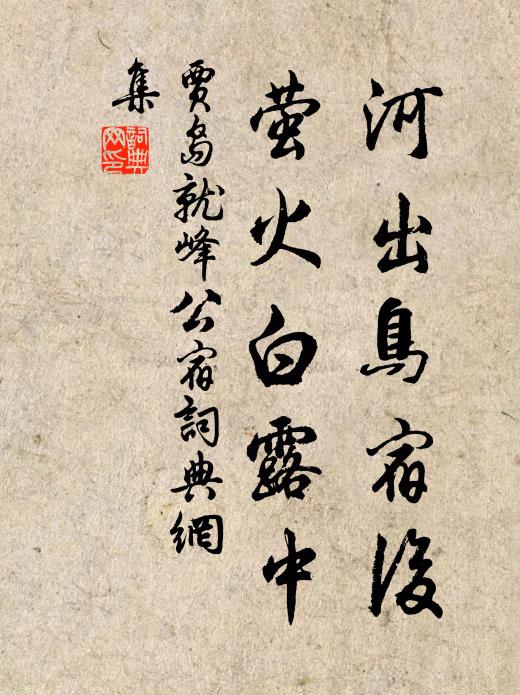 河出鳥宿後
萤火白露中
賈島就峰公宿詞典網
集
詞典網印